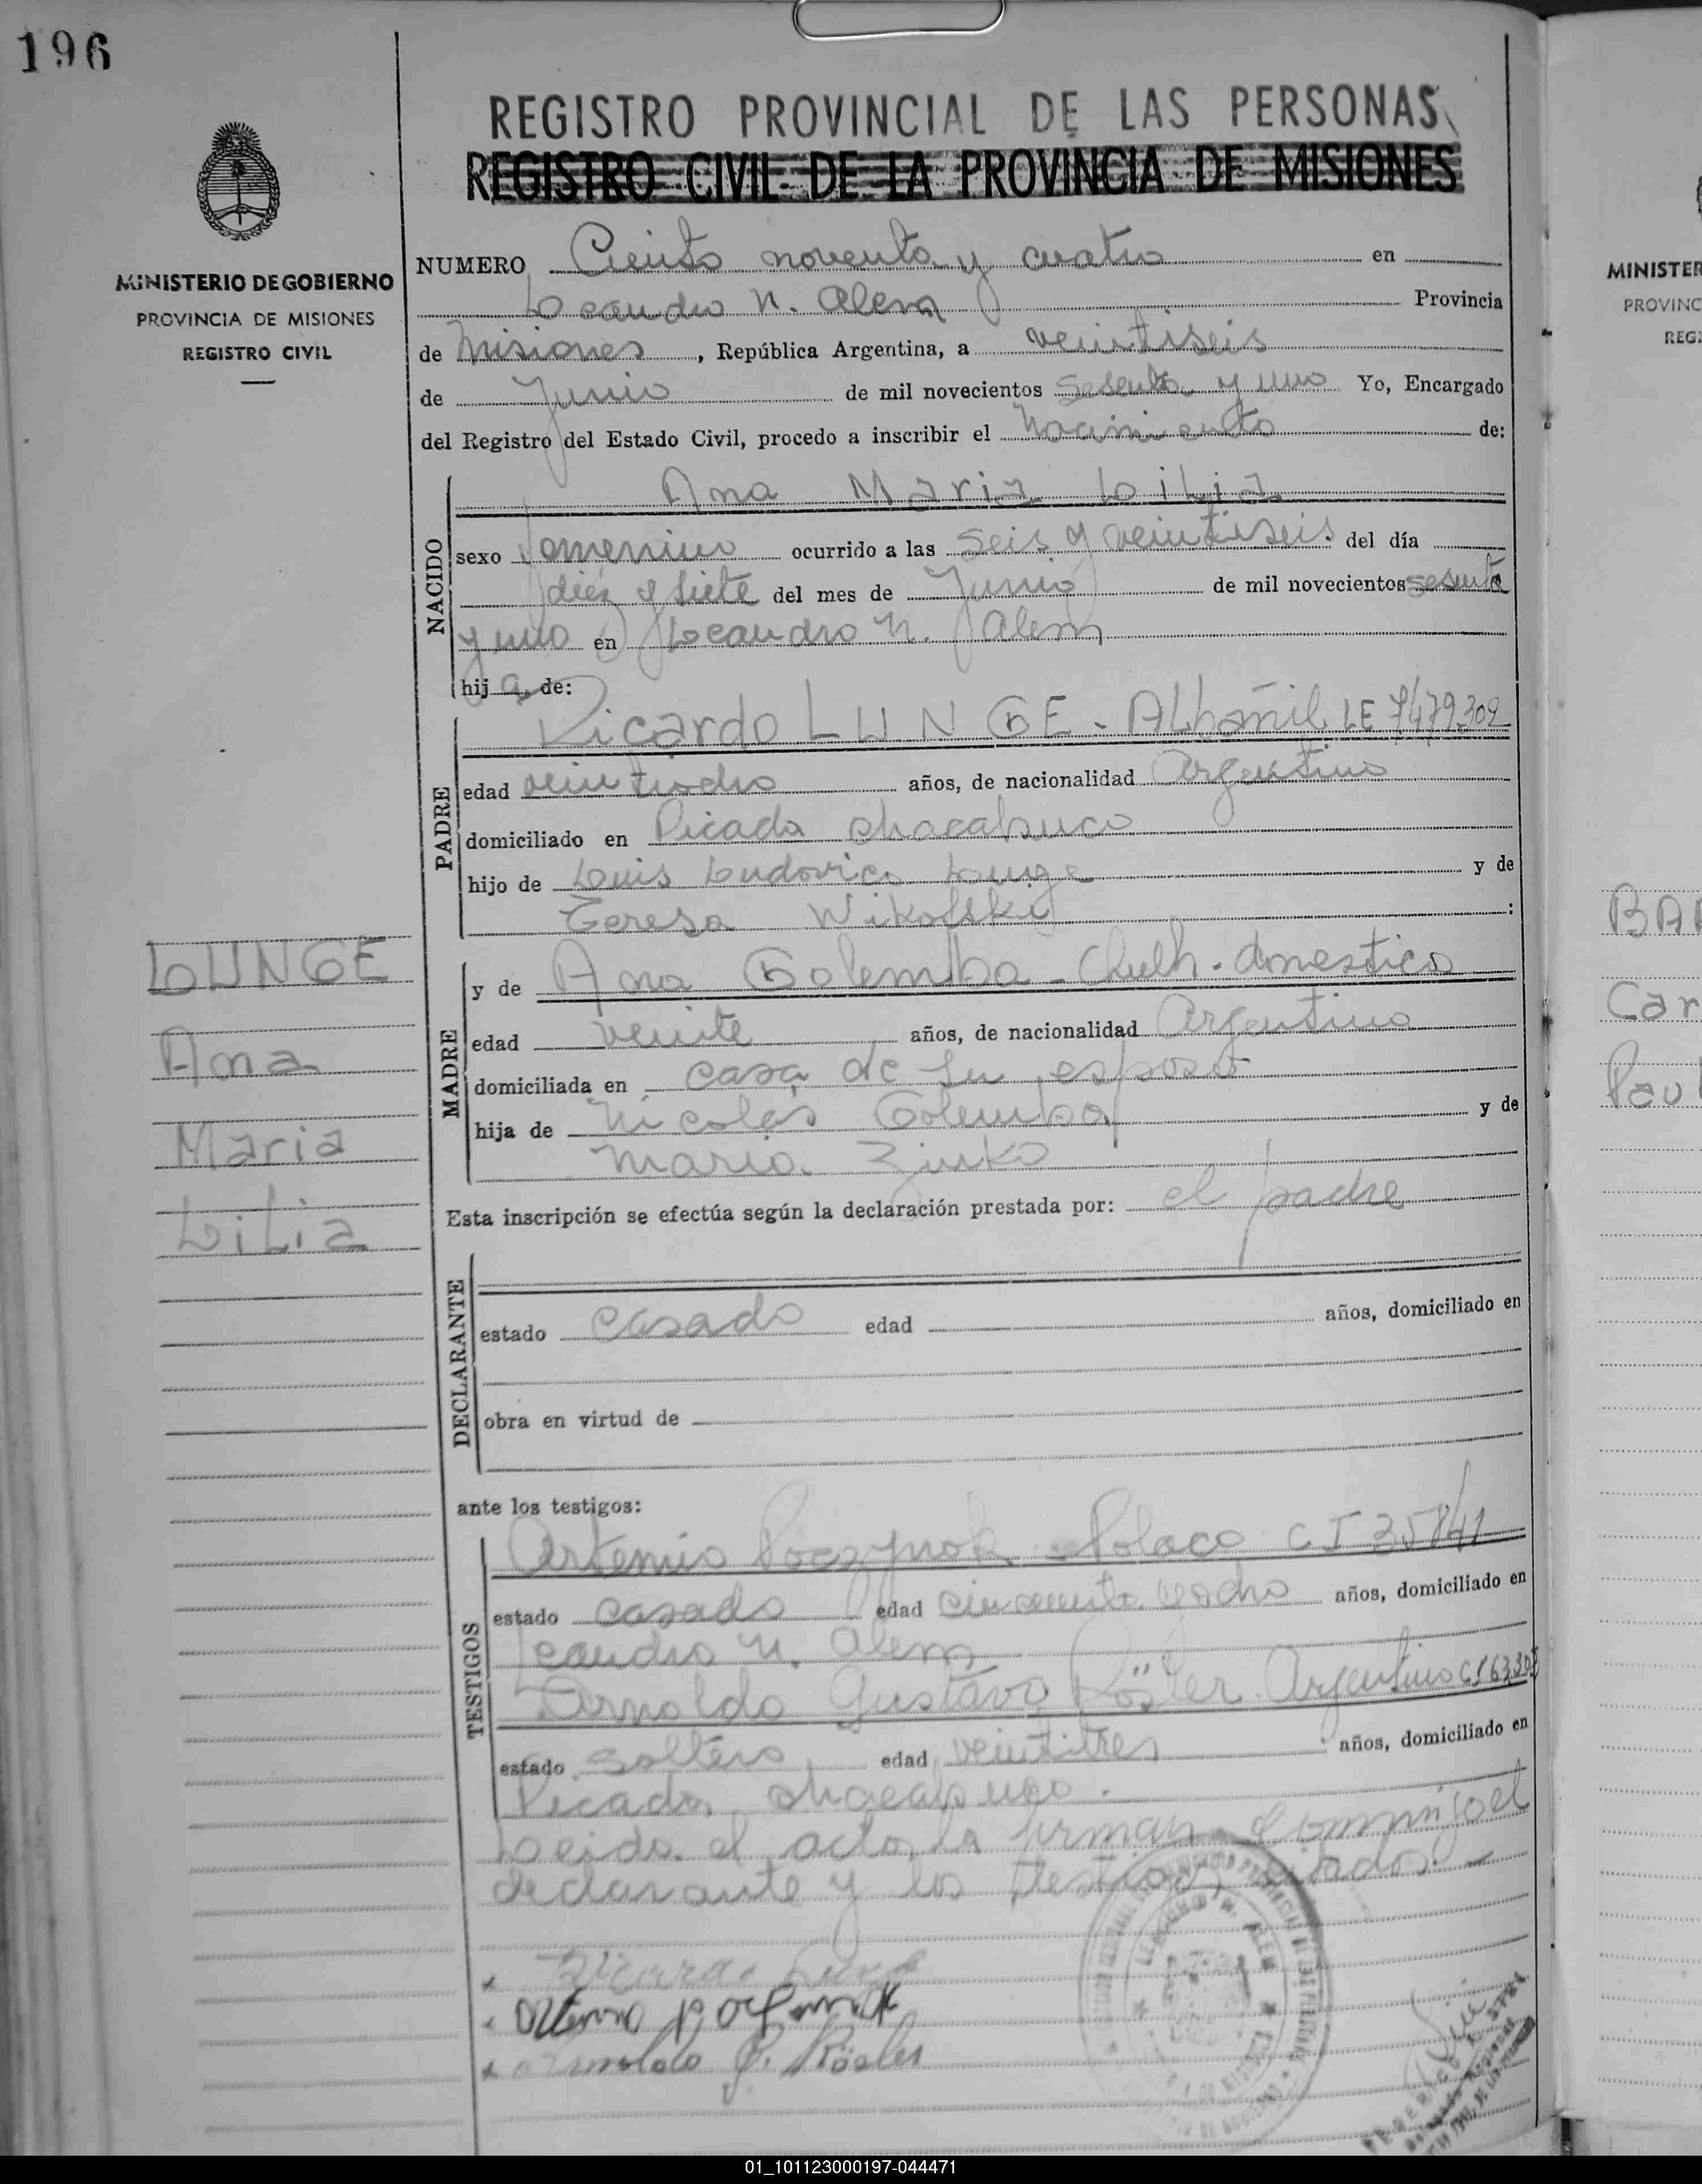 196
REGISTRO PROVINCIAL DE LAS PERSONAS
REGISTRO CIVIL DE LA PROVINCIA DE MISIONES
MINISTERIO DE GOBIERNO
PROVINCIA DE MISIONES
REGISTRO CIVIL
NUMERO Ciento noventa y cuatro en
Leandro N. Alem Provincia
de Misiones, República Argentina, a veintiseis
de Junio de mil novecientos sesenta y uno Yo, Encargado
del Registro del Estado Civil, procedo a inscribir el Nacimiento de:
NACIDO
Ana Maria Lilia
sexo femenino ocurrido a las seis y veintiseis del día
diez y siete del mes de Junio de mil novecientos sesenta
y uno en Leandro N. Alem
hija de:
PADRE
Ricardo LUNGE - Albañil LE 7479302
edad veintiocho años, de nacionalidad Argentino
domiciliado en Picada Chacabuco
hijo de Luis Ludovico Lunge y de
Teresa Wikolski :
MADRE
y de Ana Golemba - domestica
edad veinte años, de nacionalidad Argentina
domiciliada en casa de su esposo
hija de Nicolás Golemba y de
Maria Zuko
LUNGE
Ana
Maria
Lilia
Esta inscripción se efectúa según la declaración prestada por: el padre
DECLARANTE
estado casado edad años, domiciliado en
obra en virtud de
ante los testigos:
TESTIGOS
Artemio Poczynok - Polaco C I 35841
estado casado edad cincuenta y ocho años, domiciliado en
Leandro N. Alem
Arnoldo Gustavo Rösler Argentino CI
estado soltero edad veintitres años, domiciliado en
Picada Chacabuco.
Leida el acta, la firman conmigo el
declarante y los testigos citados.-
Ricardo Lunge
Arnoldo G. Rösler
LEANDRO N. ALEM
MINISTER
PROVINC
REG
BAR
Car
Paul
01_101123000197-044471